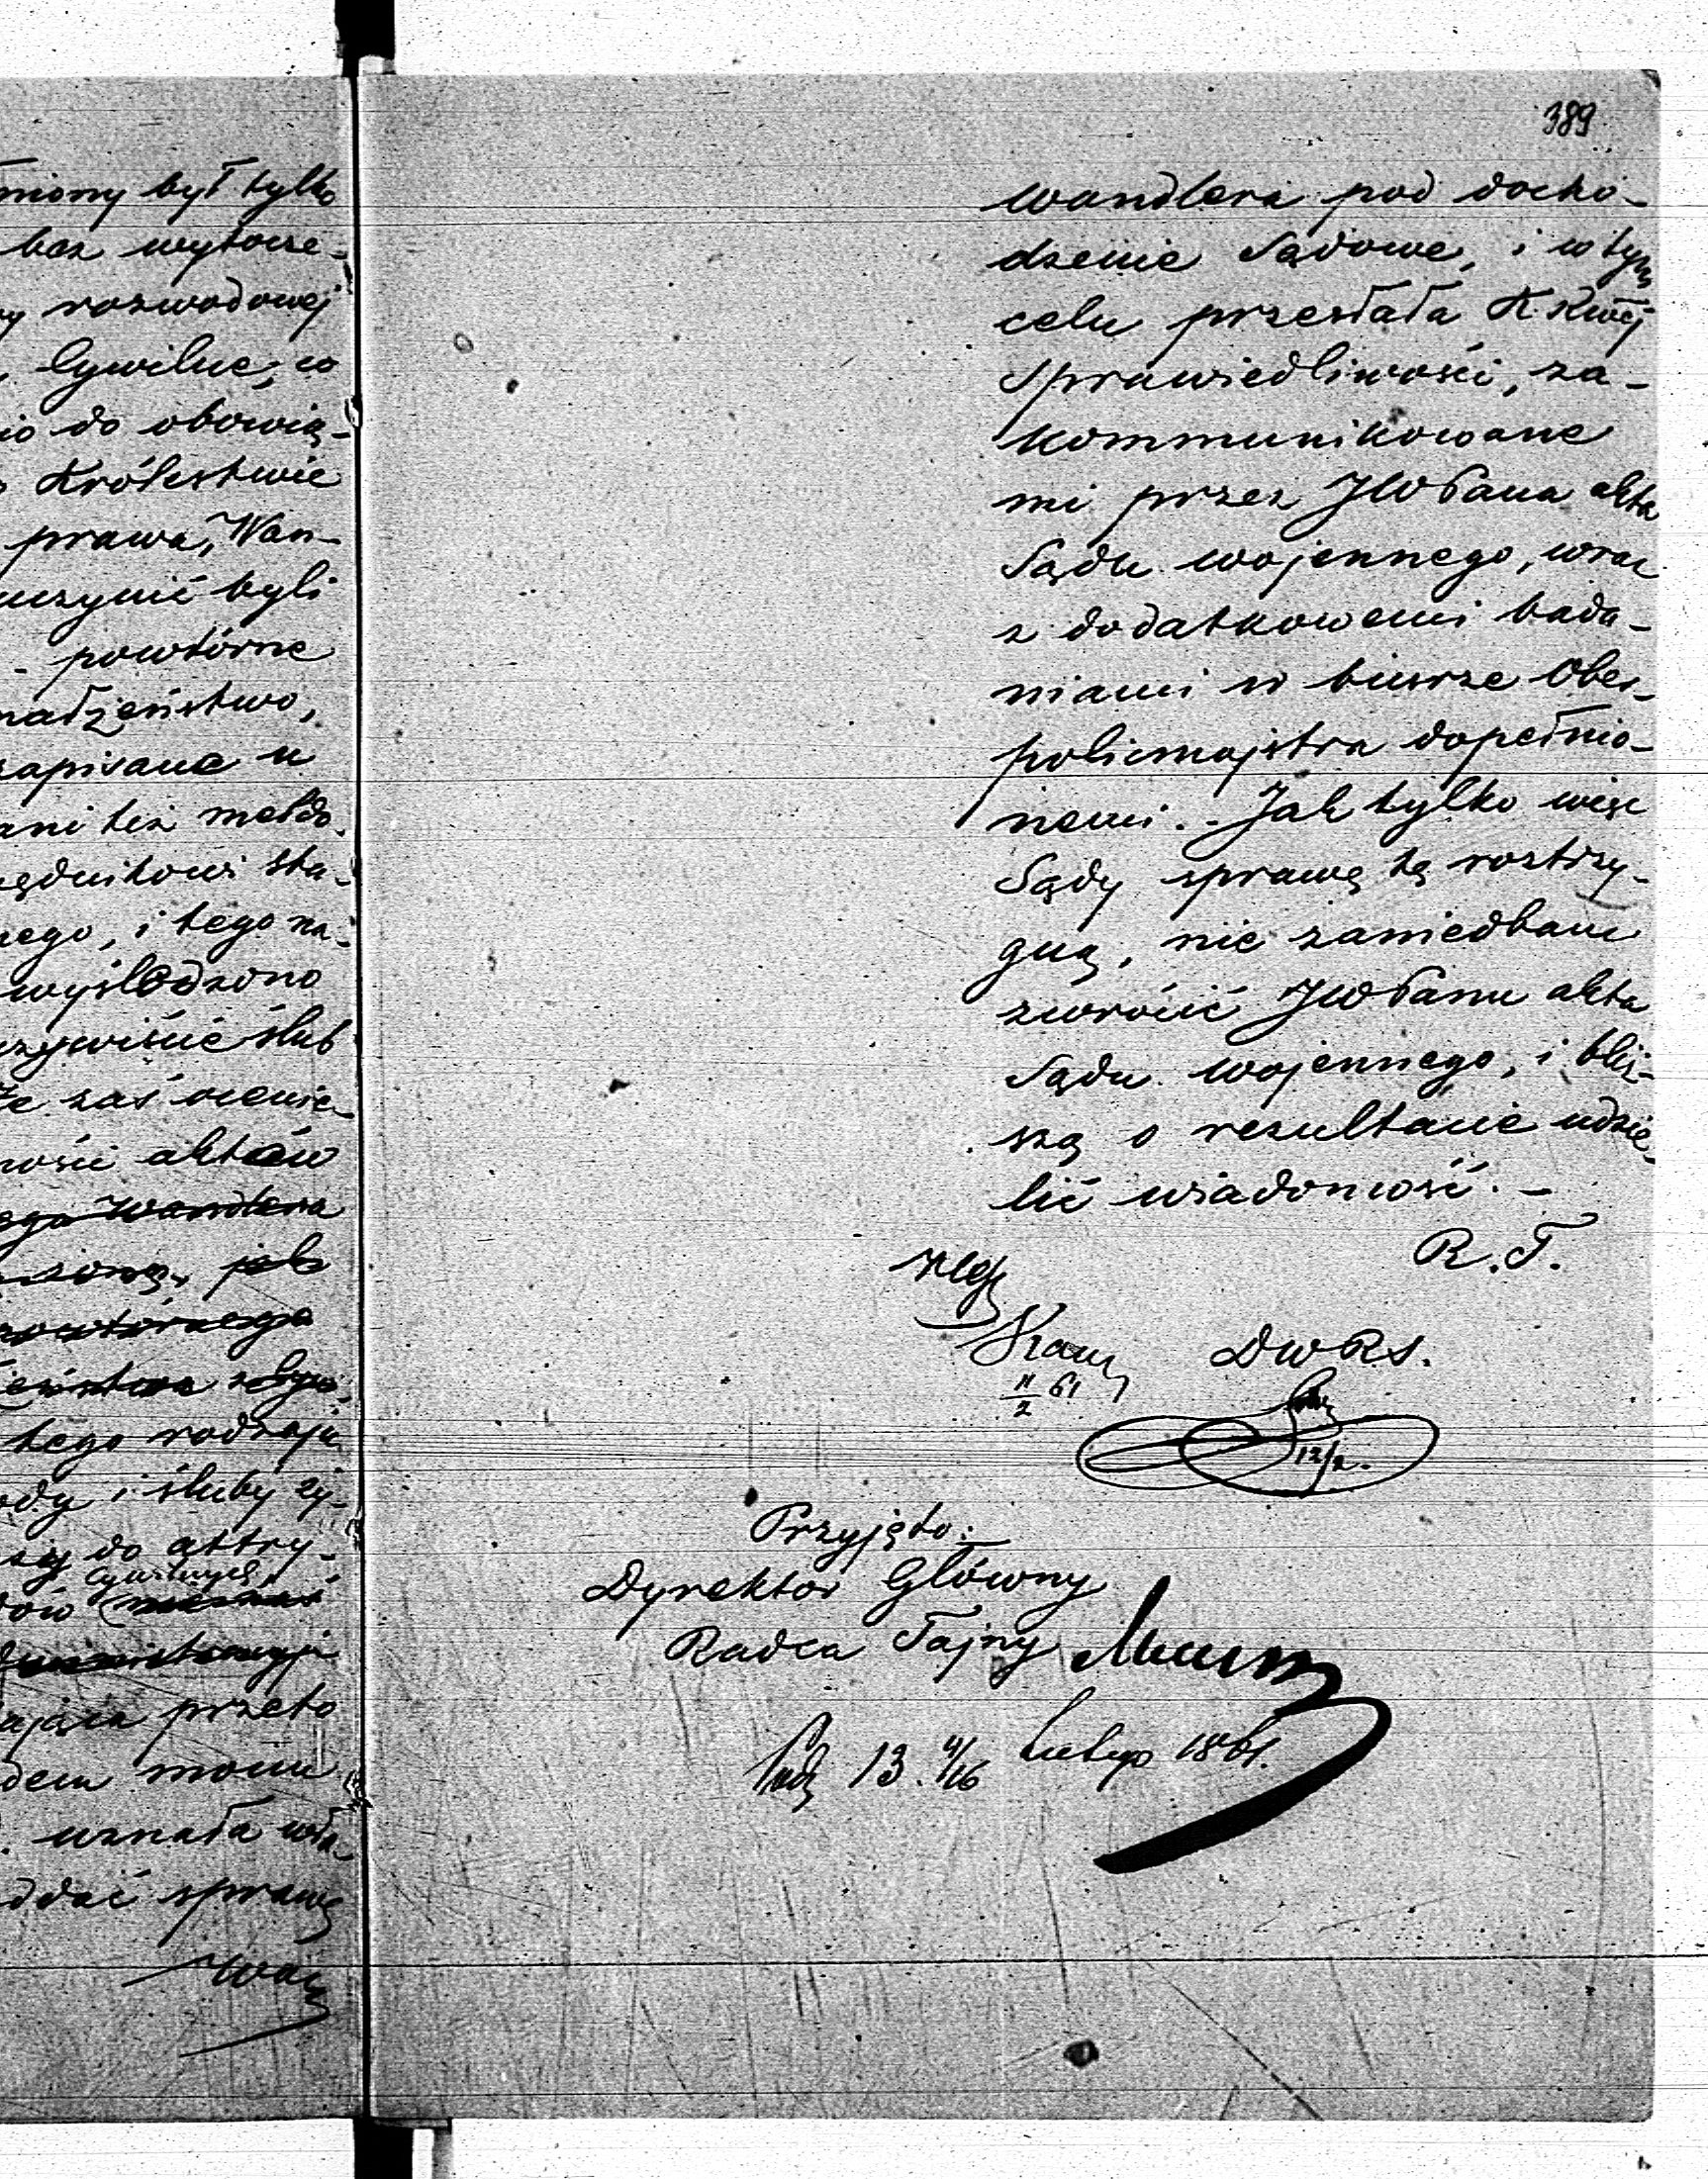 był tylko
bez wytocze-
rozwodowej
Cywilne, co
do obowią-
Królestwie
prawa, Wan-
uczynić byli
powtórne
zapisane w
ani też meldo-
i tego na-
wyśledzono
ślub
zaś ocenie-
aktów
Wandlera
jako
powtórnego
tego rodzaju
i śluby cy-
do attry-
cywilnych
przeto
moim
uznała wła-
oddać sprawę
Wan
389
wandlera pod docho-
dzenie Sądowe, i w tym
celu przesłała K. Rwéj
Sprawiedliwości, za-
kommunikowane
mi przez JWPana akta
Sądu wojennego, wraz
z dodatkowemi bada-
niami w biurze Ober-
policmajstra dopełnio-
nemi. - Jak tylko więc
Sądy sprawę tę roztrzy-
gną, nie zaniedbam
zwrócić JWPanu akta
Sądu wojennego, i bliż-
szą o rezultacie udzie-
lić wiadomość. -
R. T.
DWRS.
11/2 61
12/2.
Przyjęto:
Dyrektor Główny
Radca Tajny
13. 4/16 Lutego 1861.